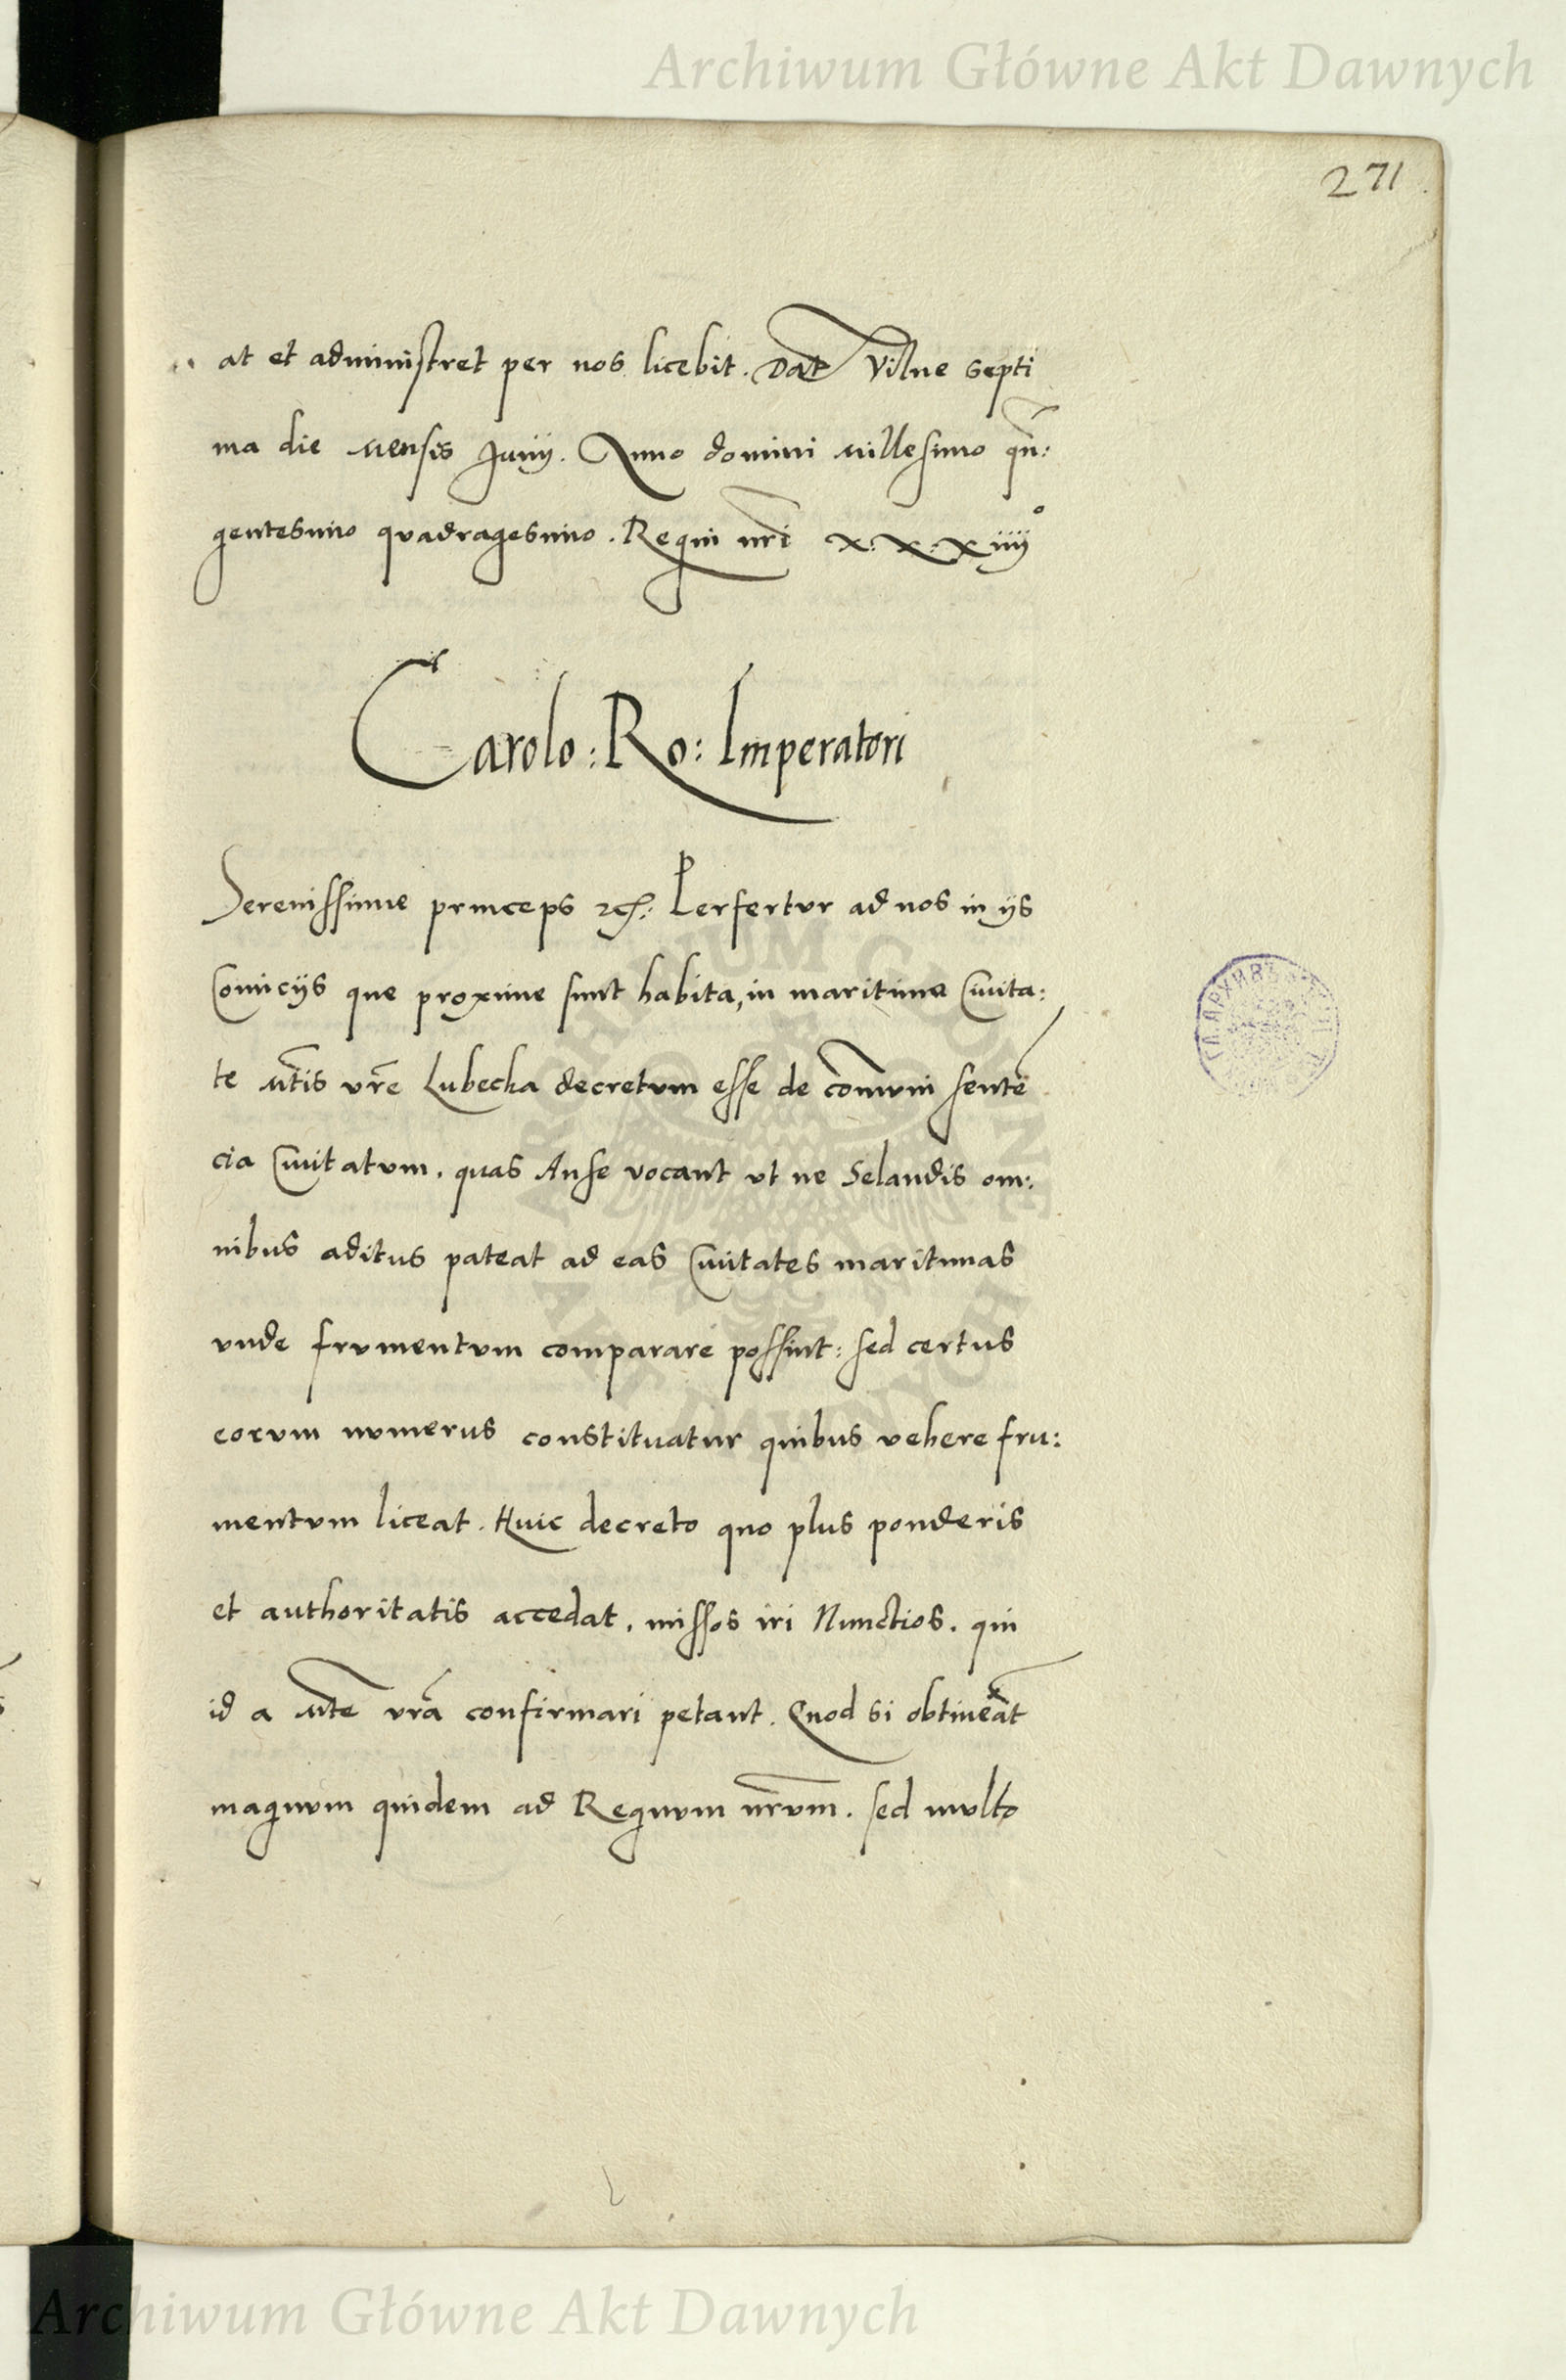 Archiwum Główne Akt Dawnych
271
at et administret per nos licebit. Dat Vilne septi
ma die Mensis Junij. Anno domini Millesimo qn̄:
gentesimo quadragesimo. Regni nr̄i x.x.x iiij°
Carolo: Ro: Imperatori
Serenissime princeps etc: Perfertur ad nos in ijs
Comicijs que proxime sunt habita, in maritima Ciuita:
te Mtis vr̄e Lubecka decretum esse de com̄uni senten̄
cia Ciuitatum. quas Anse vocant ut ne Selandis om:
nibus aditus pateat ad eas Ciuitates maritimas
unde frumentum comparare possint: sed certus
eorum numerus constituatur quibus vehere fru:
mentum liceat. Huic decreto quo plus ponderis
et authoritatis accedat, missos iri Nunctios. qui
id a Mte vr̄a confirmari petant. Quod si obtineat
magnum quidem ad Regnum nr̄um. sed multo
Archiwum Główne Akt Dawnych